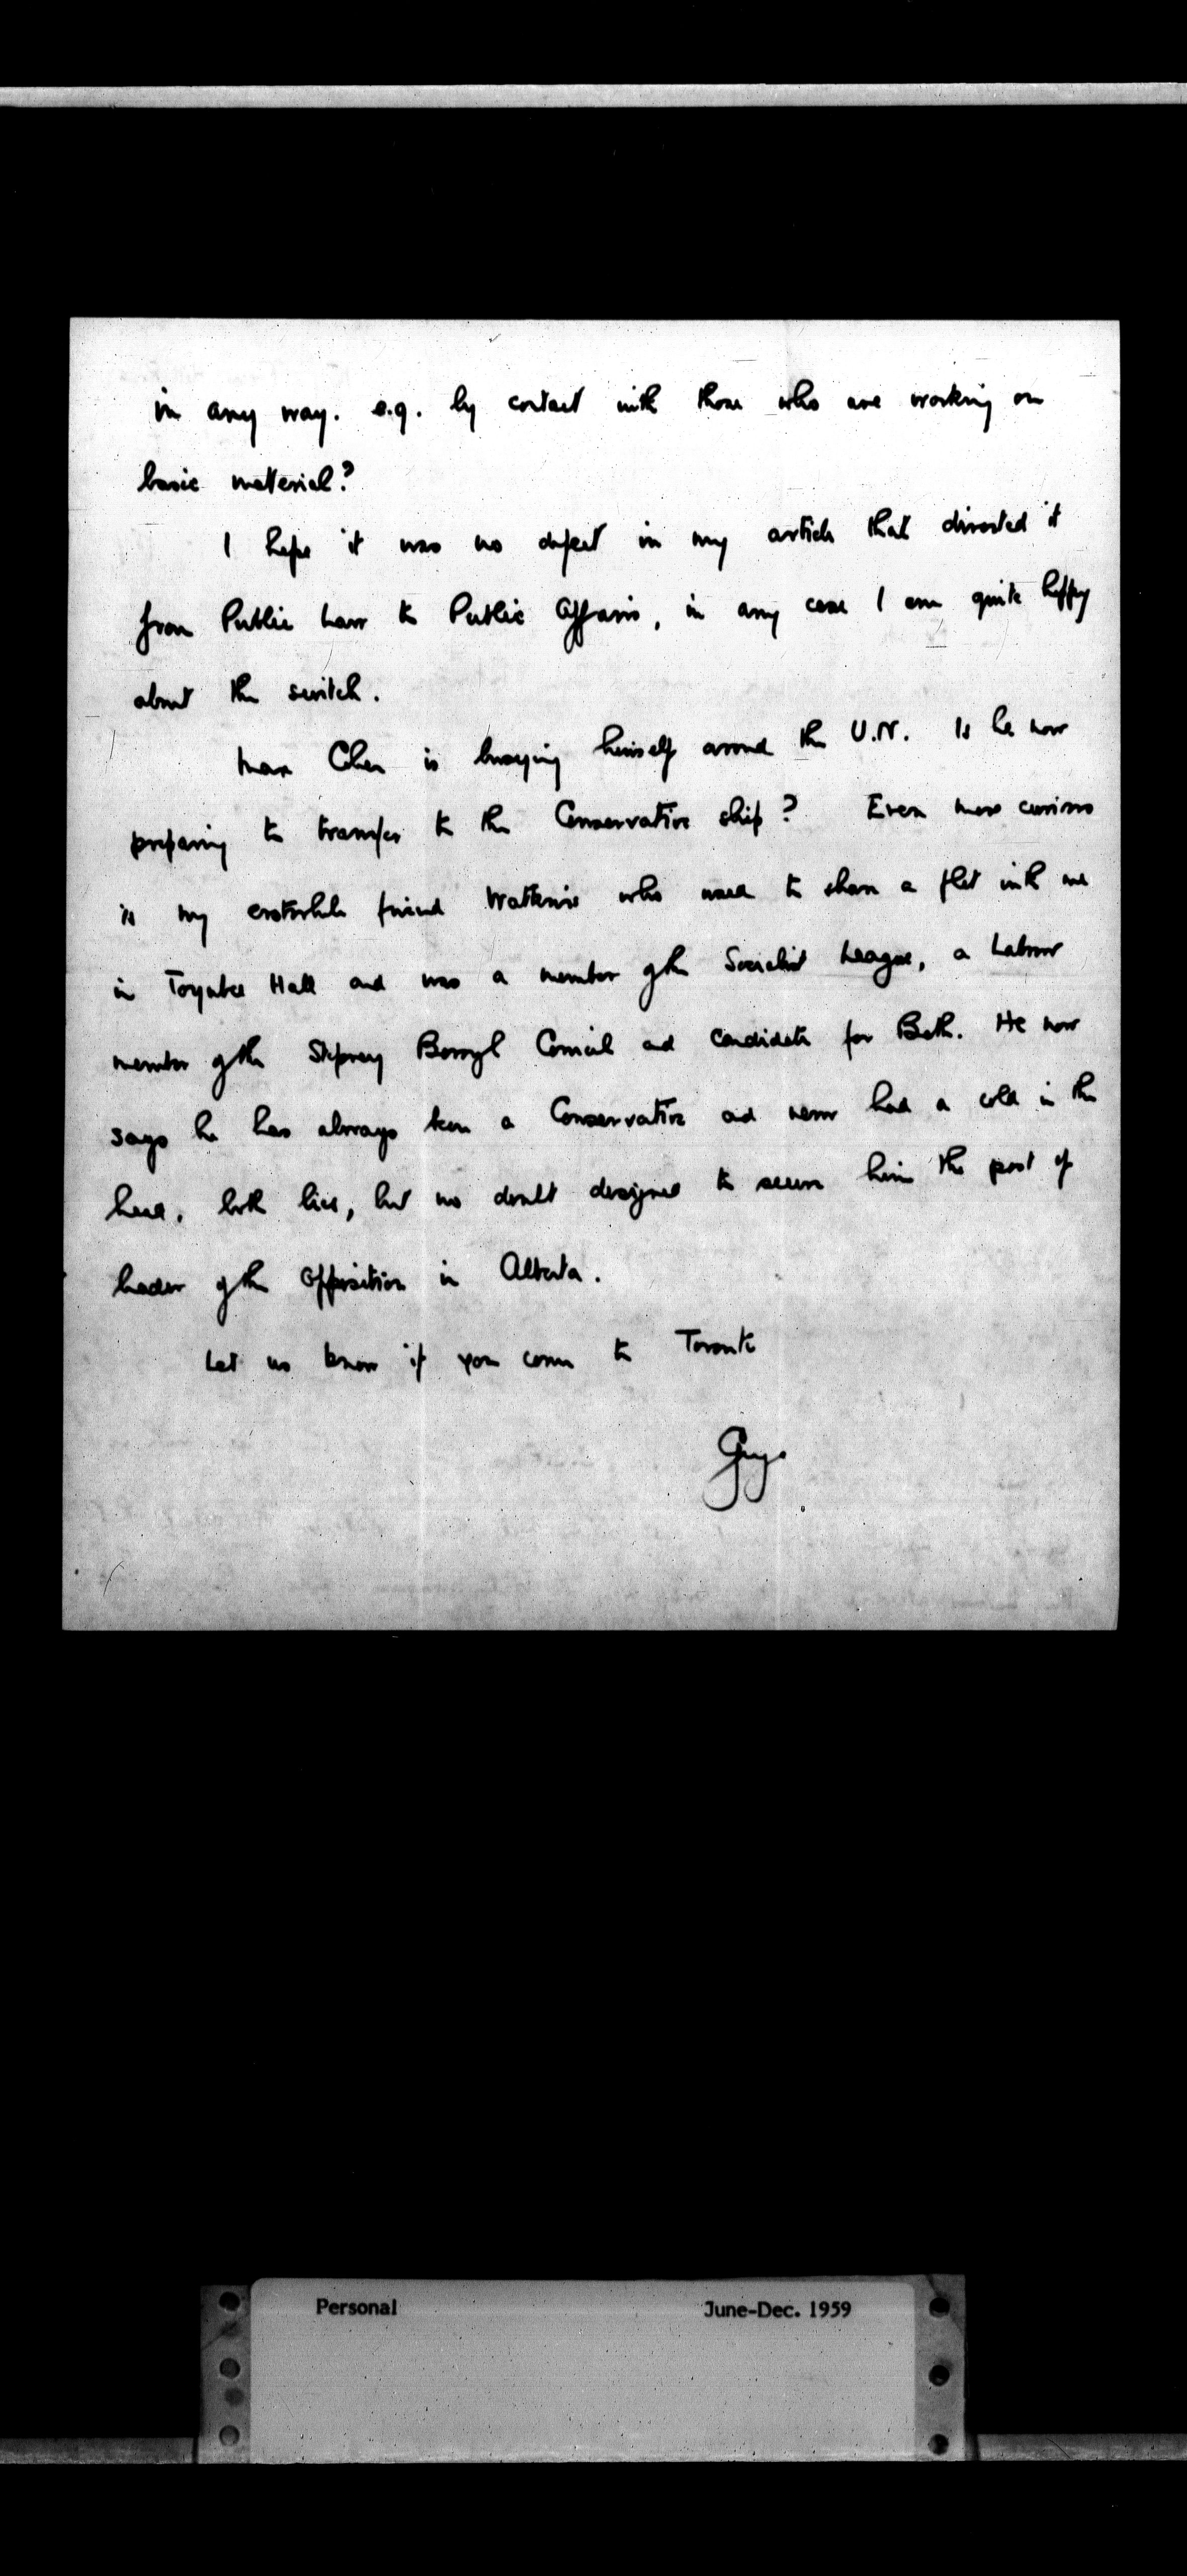 in any way. e.g. by contact with those who are working on
basic material?
I hope it was no defect in my article that diverted it
from Public Law to Public Affairs, in any case I am quite happy
about the switch.
Max Cohen is busying himself around the U.N. Is he now
preparing to transfer to the Conservative ship? Even more curious
is my erstwhile friend Watkins who used to share a flat with me
in Toynbee Hall and was a member of the Socialist League, a Labour
member of the Stepney Borough Council and candidate for Bath. He now
says he has always been a Conservative and never had a cold in the
head, both lies, but no doubt designed to secure him the post of
leader of the Opposition in Alberta.
Let us know if you come to Toronto
Guy.
Personal June-Dec. 1959